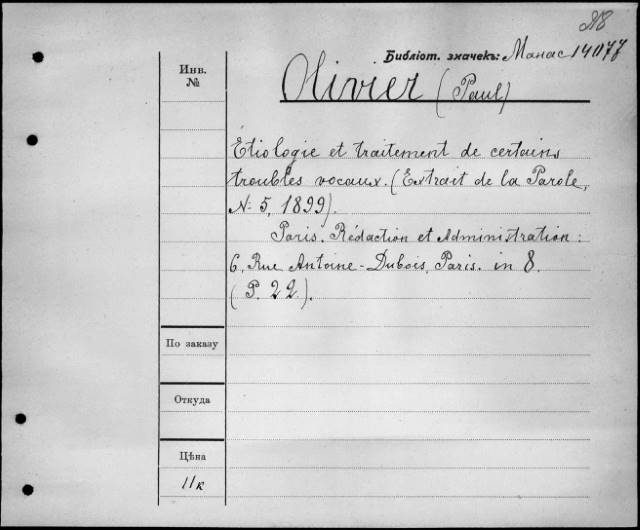 Библіот. значекъ: Манас 14077
Инв.
№
Olivier (Paul)
Etiologie et traitement de certains
troubles vocaux. (Extrait de la Parole,
N: 5, 1899).
Paris. Rédaction et Administration:
6, Rue Antoine-Dubois, Paris. in 8.
(P. 22).
По заказу
Откуда
Цѣна
11к